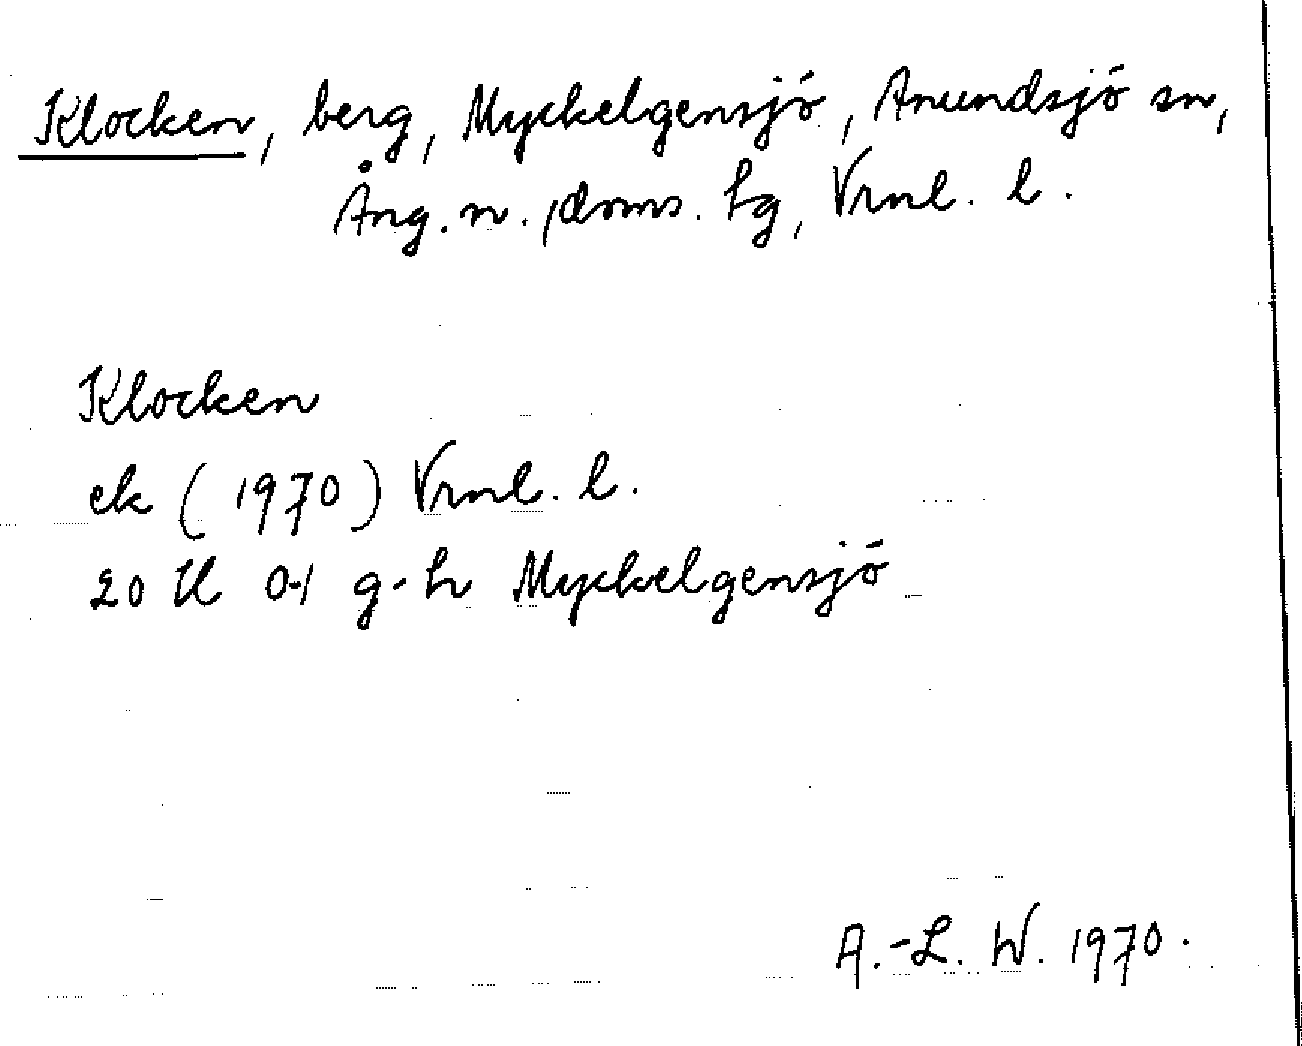 Klocken, berg, Myckelgensjö, Anundsjö sn,
Ång. n. , doms. hg, Vrnl. l.
Klocken
ek (1970) Vrnl. l.
20 H 0-1 g-h Myckelgensjö
A.-L. W. 1970.